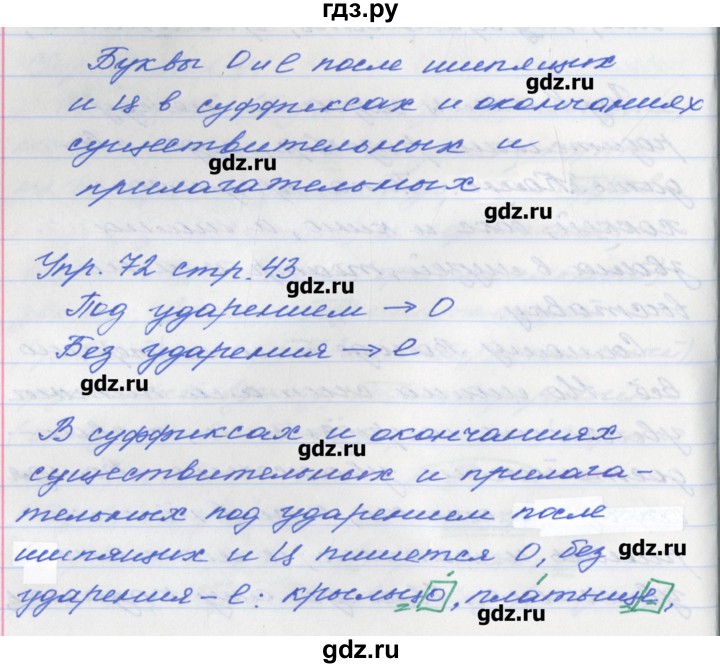 гдз.ру
Буквы О и е после шипящих
gdz.ru
и Ц в суффиксах и окончаниях
существительных и
gdz.ru
прилагательных
gdz.ru
Упр. 72 стр. 43
gdz.ru
Под ударением → О
Без ударения → е
gdz.ru
В суффиксах и окончаниях
gdz.ru
существительных и прилага-
тельных под ударением после
шипящих и Ц пишется О, без
gdz.ru
ударения - е: крыльцо, платьице,
gdz.ru
gdz.ru
gdz.ru